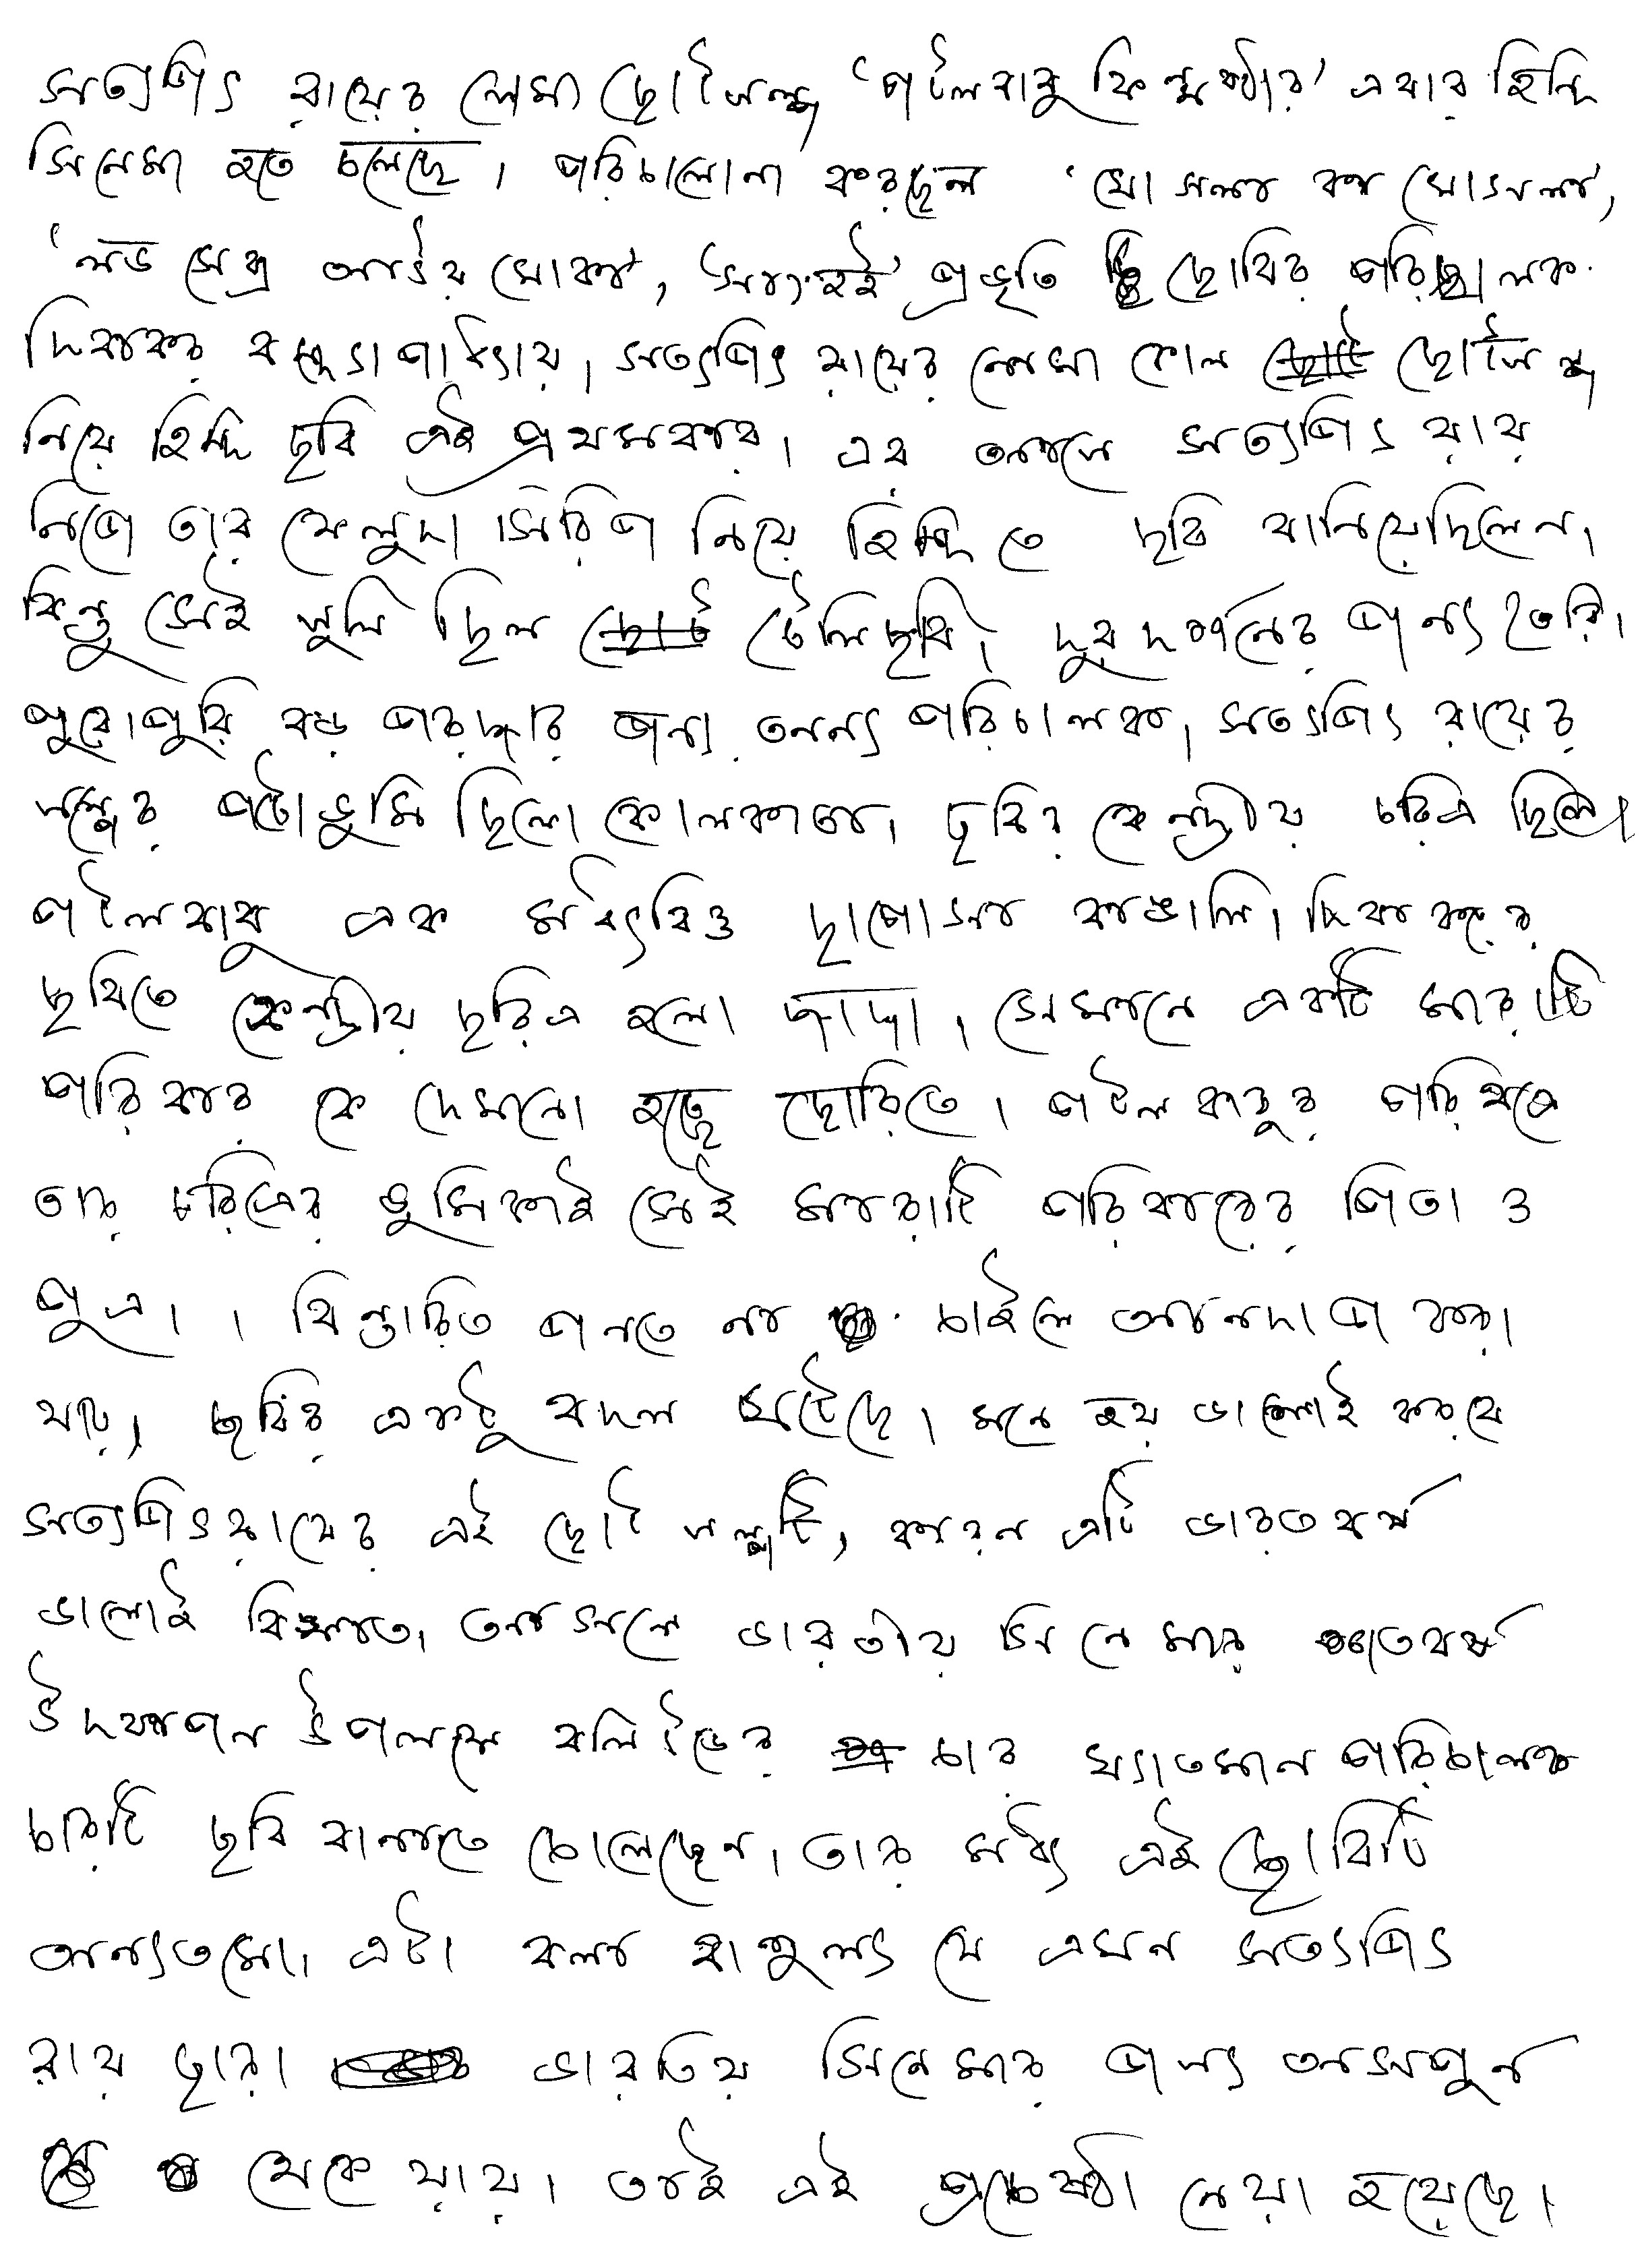 সত্যজিৎ রায়ের লেখা ছোটগল্প 'পটলবাবু ফিল্মস্টার' এবার হিন্দি
সিনেমা হতে চলেছে। পরিচালোনা করছেন 'খোসলা কা ঘোসলা',
'লভ সেক্স আউর ধোকা', 'সাংহাই' প্রভৃতি ছোবির পরিচালক
দিবাকর বন্দ্যোপাধ্যায়। সত্যজিৎ রায়ের লেখা কোন ছোটগল্প
নিয়ে হিন্দি ছবি এই প্রথমবার। এর আগে সত্যজিৎ রায়
নিজে তার ফেলুদা সিরিজ নিয়ে হিন্দিতে ছবি বানিয়েছিলেন।
কিন্তু সেই গুলি ছিল টেলিছবি, দুরদর্শনের জন্য তৈরি।
পুরোপুরি বড় পরদার জন্য অনন্য পরিচালক, সত্যজিৎ রায়ের
গল্পের পটোভুমি ছিলো কোলকাতা। ছবির কেন্দ্রীয় চরিত্র ছিলো
পটলবাবু এক মধ্যবিত্ত ছাপোসা বাঙালি। দিবাকরের
ছবিতে কেন্দ্রীয় ছরিত্র হলো দাদা। সেখানে একটি মারাটি
পরিবার কে দেখানো হচ্ছে ছোবিতে। পটলবাবুর পরিবর্তে
তার চরিত্রের ভুমিকাই সেই মারাটি পরিবারের পিতা ও
পুত্র। । বিস্তারিত জানতে না চাইলে আনদাজ করা
যায়, ছবির একটু বদল ঘটেছে। মনে হয় ভালোই করবে
সত্যজিৎ রায়ের এই ছোট গল্পটি, কারন এটি ভারতবর্ষ
ভালোই বিখ্যাত। আসলে ভারতীয় সিনেমার শতবর্ষ
উদযাপন উপলক্ষে বলিউডের চার খ্যাতমান পরিচালক
চারটি ছবি বানাতে চোলেছেন। তার মধ্য এই ছোবিটি
অন্যতমো। এটা বলা বাহুল্য যে এমন সত্যজিৎ
রায় ছারা ভারতিয় সিনেমার জন্য অসমপুর্ন
থেকে যায়। তাই এই প্রচেষ্ঠা নেয়া হয়েছে।